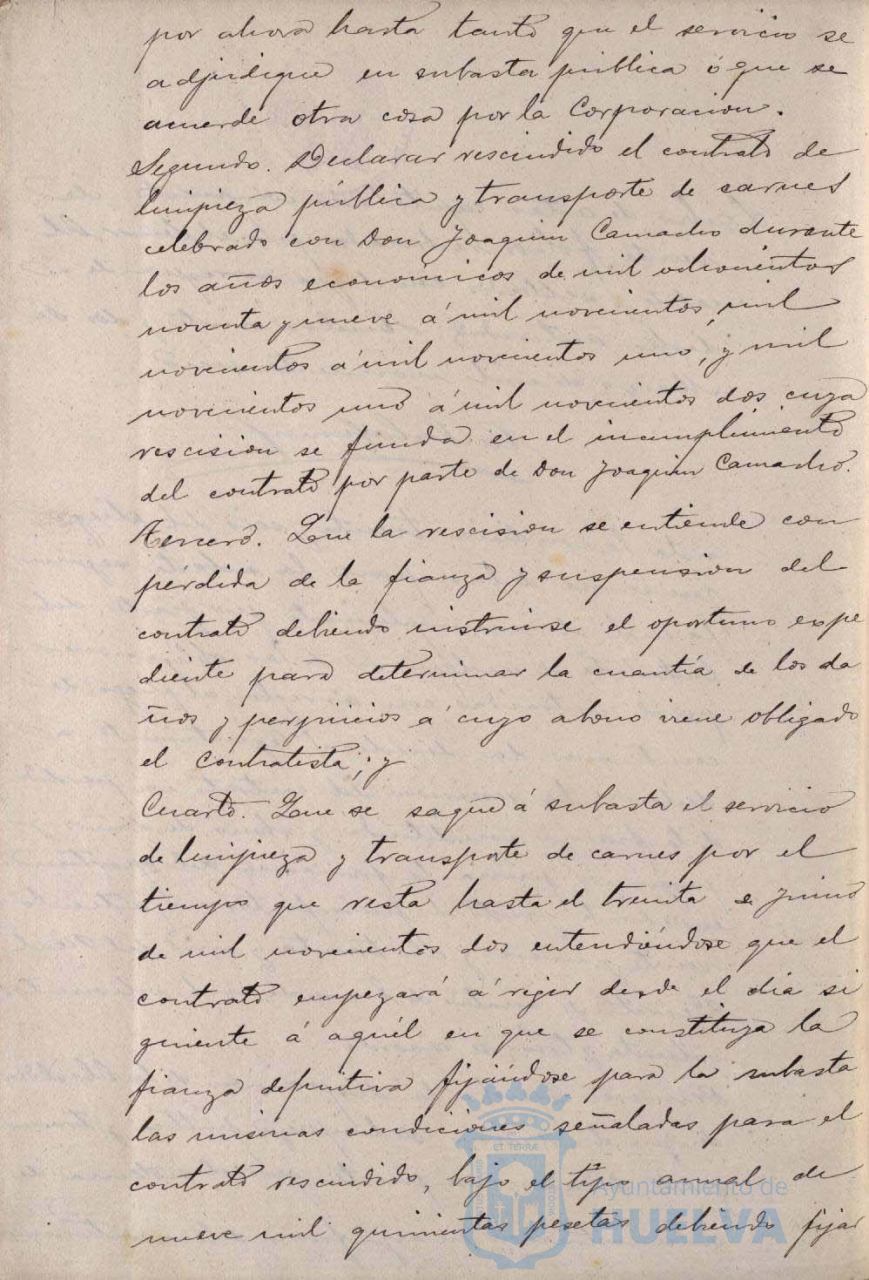 por ahora hasta tanto que el servicio se
adjudique en subasta pública ó que se
acuerde otra cosa por la Corporacion.
Segundo. Declarar rescindido el contrato de
limpieza pública y transporte de carnes
celebrado con Don Joaquin Camacho durante
los años económicos de mil ochocientos
noventa y nueve á mil novecientos, mil
novecientos á mil novecientos uno, y mil
novecientos uno á mil novecientos dos cuya
rescision se funda en el incumplimiento
del contrato por parte de Don Joaquin Camacho.
Tercero. Que la rescision se entiende con
pérdida de la fianza y suspension del
contrato debiendo instruirse el oportuno expe
diente para determinar la cuantía de los da
ños y perjuicios á cuyo abono viene obligado
el contratista; y
Cuarto. Que se saque á subasta el servicio
de limpieza y transporte de carnes por el
tiempo que resta hasta el treinta de Junio
de mil novecientos dos entendiéndose que el
contrato empezará á regir desde el dia si
guiente á aquél en que se constituya la
fianza definitiva fijándose para la subasta
las mismas condiciones señaladas para el
contrato rescindido, bajo el tipo anual de
nueve mil quinientas pesetas debiendo fijar
ET TERRÆ
Ayuntamiento de
HUELVA